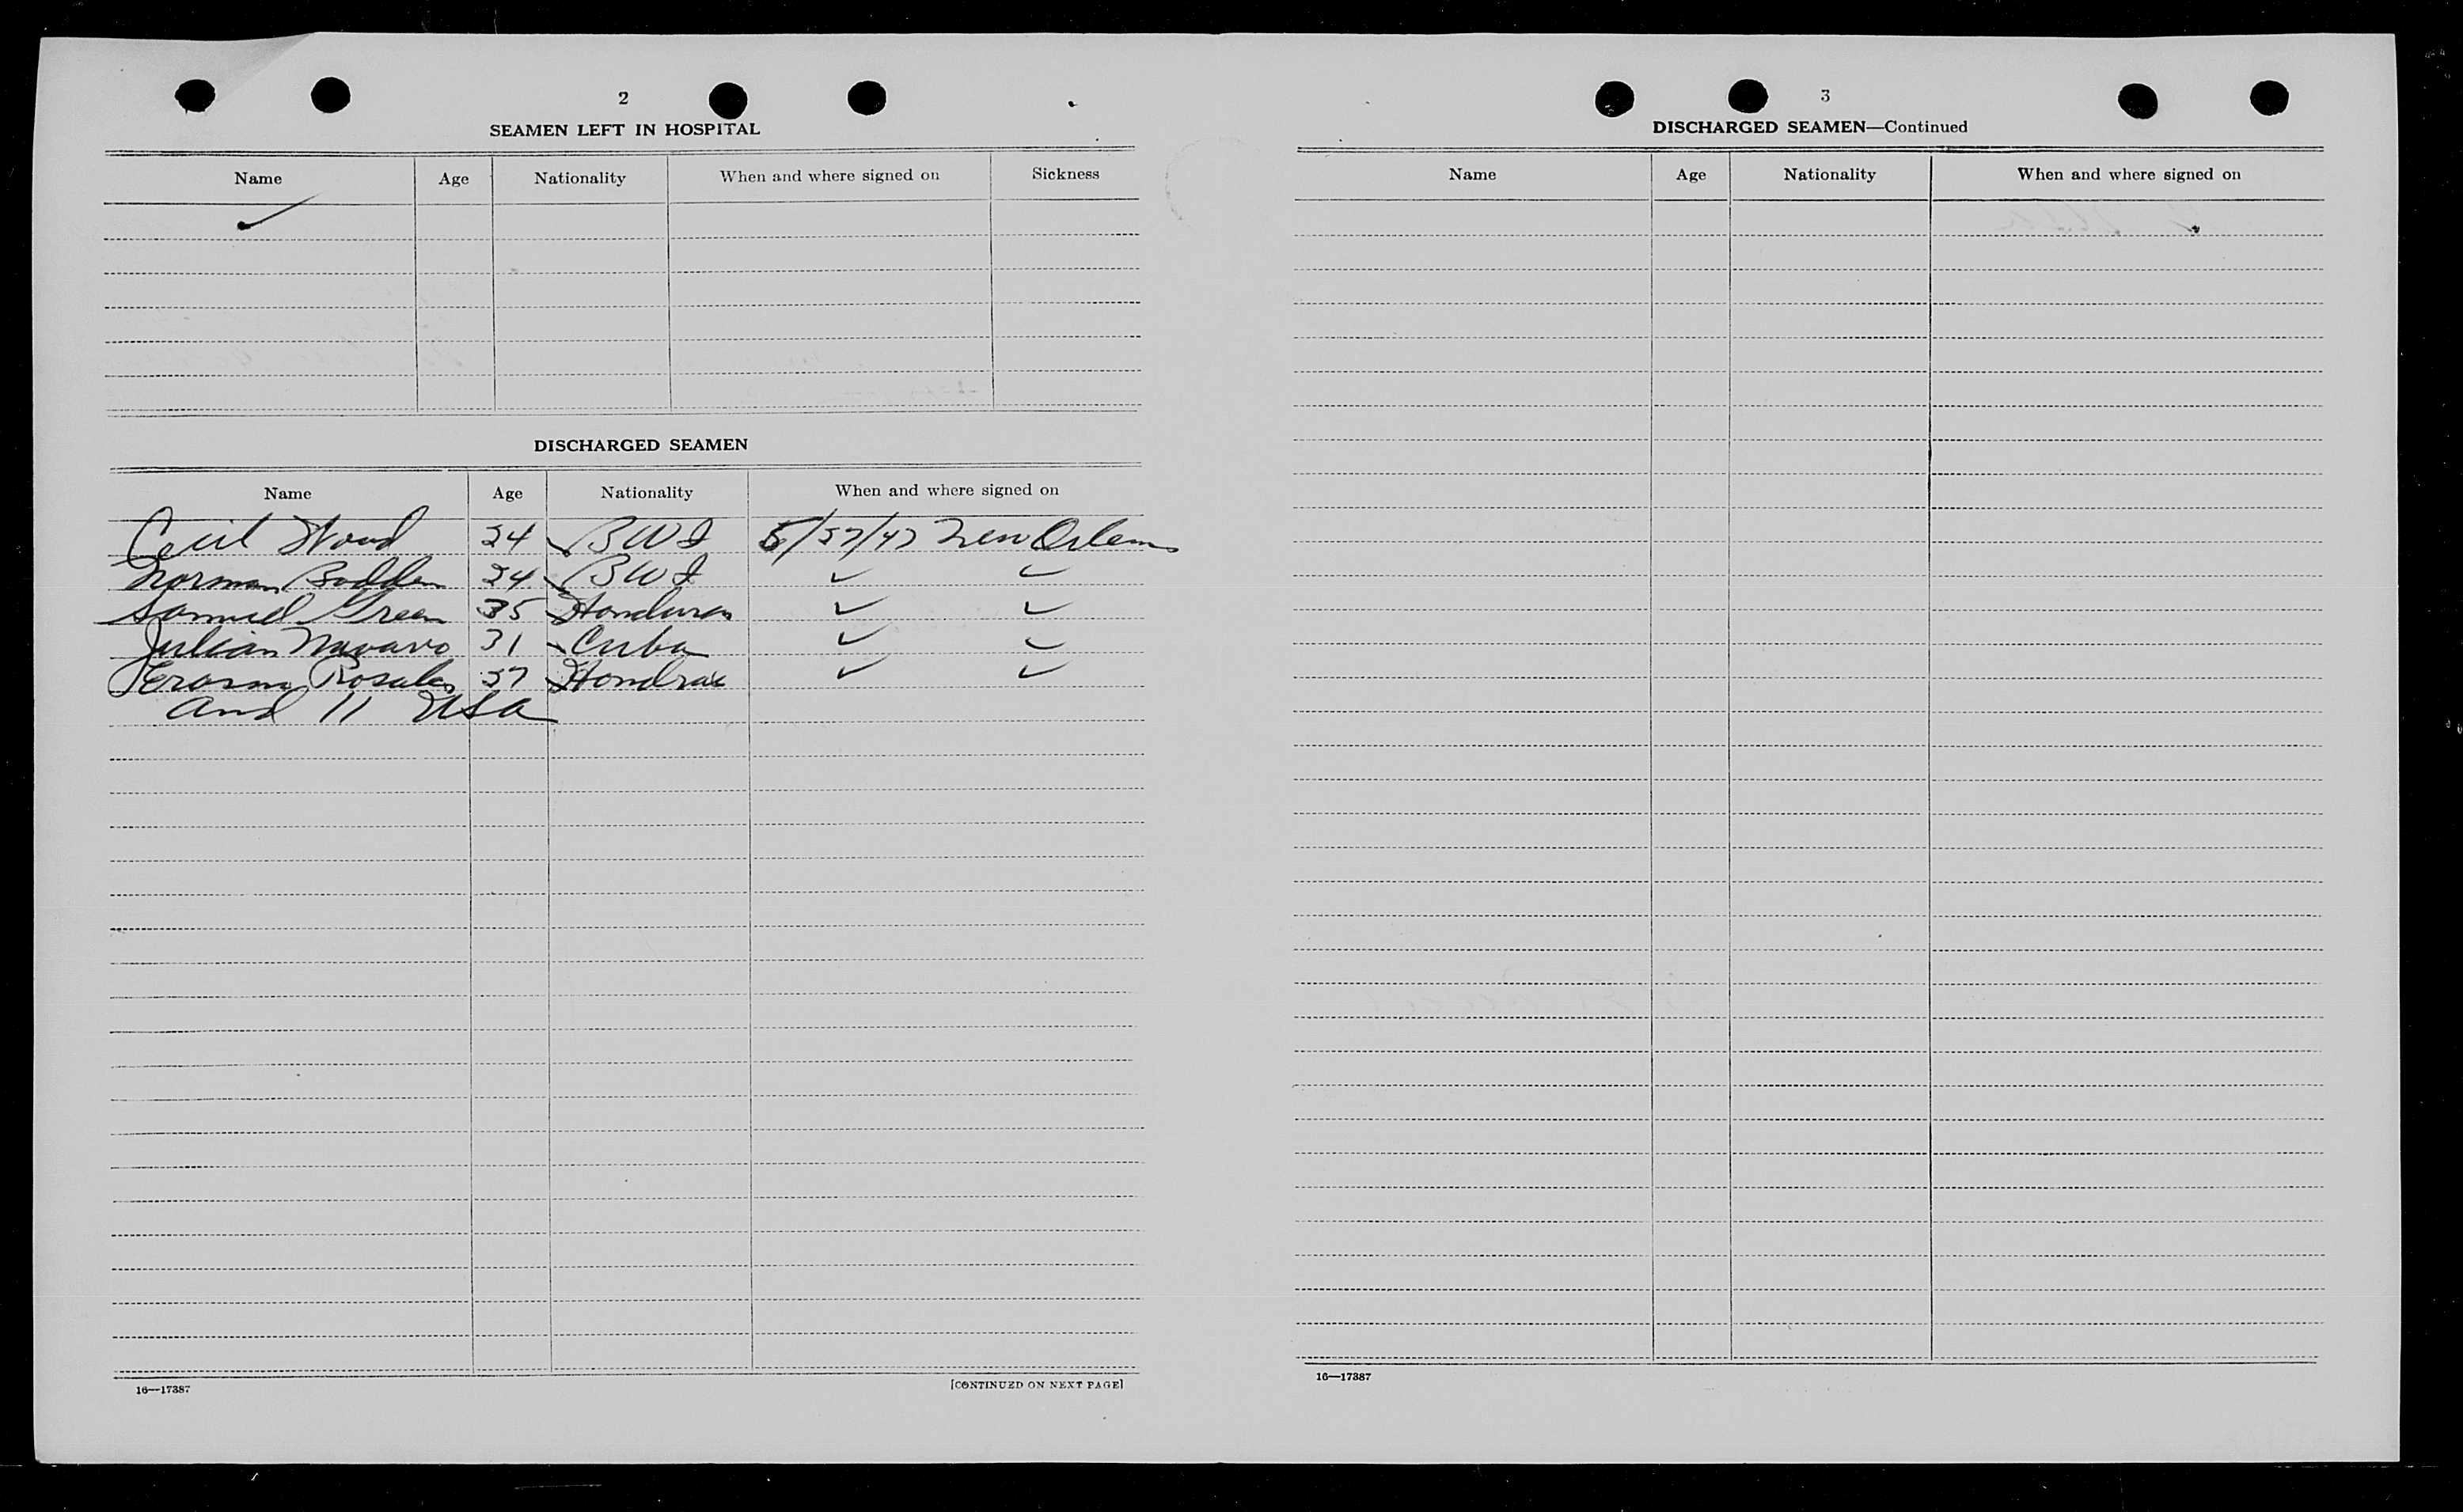 2
SEAMEN LEFT IN HOSPITAL
Name Age Nationality When and where signed on Sickness
✓
DISCHARGED SEAMEN
Name Age Nationality When and where signed on
Cecil Wood 24 BWI 5/27/47 New Orleans
Norman Bodden 24 BWI ✓ ✓
Samuel Green 35 Honduras ✓ ✓
Julian Navarro 31 Cuba ✓ ✓
Rosales 27 ✓ ✓
and 11 USA
16—17387 [CONTINUED ON NEXT PAGE]
3
DISCHARGED SEAMEN—Continued
Name Age Nationality When and where signed on
16—17387